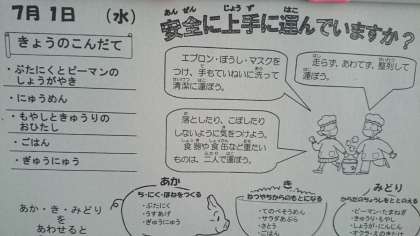 7月1日（水）
安全に上手に運んでいますか？
きょうのこんだて
・ぶたにくとピーマンの
しょうがやき
・にゅうめん
・もやしときゅうりの
おひたし
・ごはん
・ぎゅうにゅう
エプロン・ぼうし・マスクを
つけ、手もていねいに洗って
清潔に運ぼう。
走らず、あわてず、整列して
運ぼう。
落としたり、こぼしたり
しないように気をつけよう。
食器や食缶など重たい
ものは、二人で運ぼう。
あか・き・みどり
を
あわせると
あか
ち・にく・ほねをつくる
・ぶたにく
・うすあげ
・ぎゅうにゅう
き
ねつやちからのもとになる
・てのべそうめん
・サラダあぶら
・さとう
・ごはん
みどり
からだのちょうしをととのえる
・ピーマン・たまねぎ
・きゅうり・もやし
・しょうが・にんじん